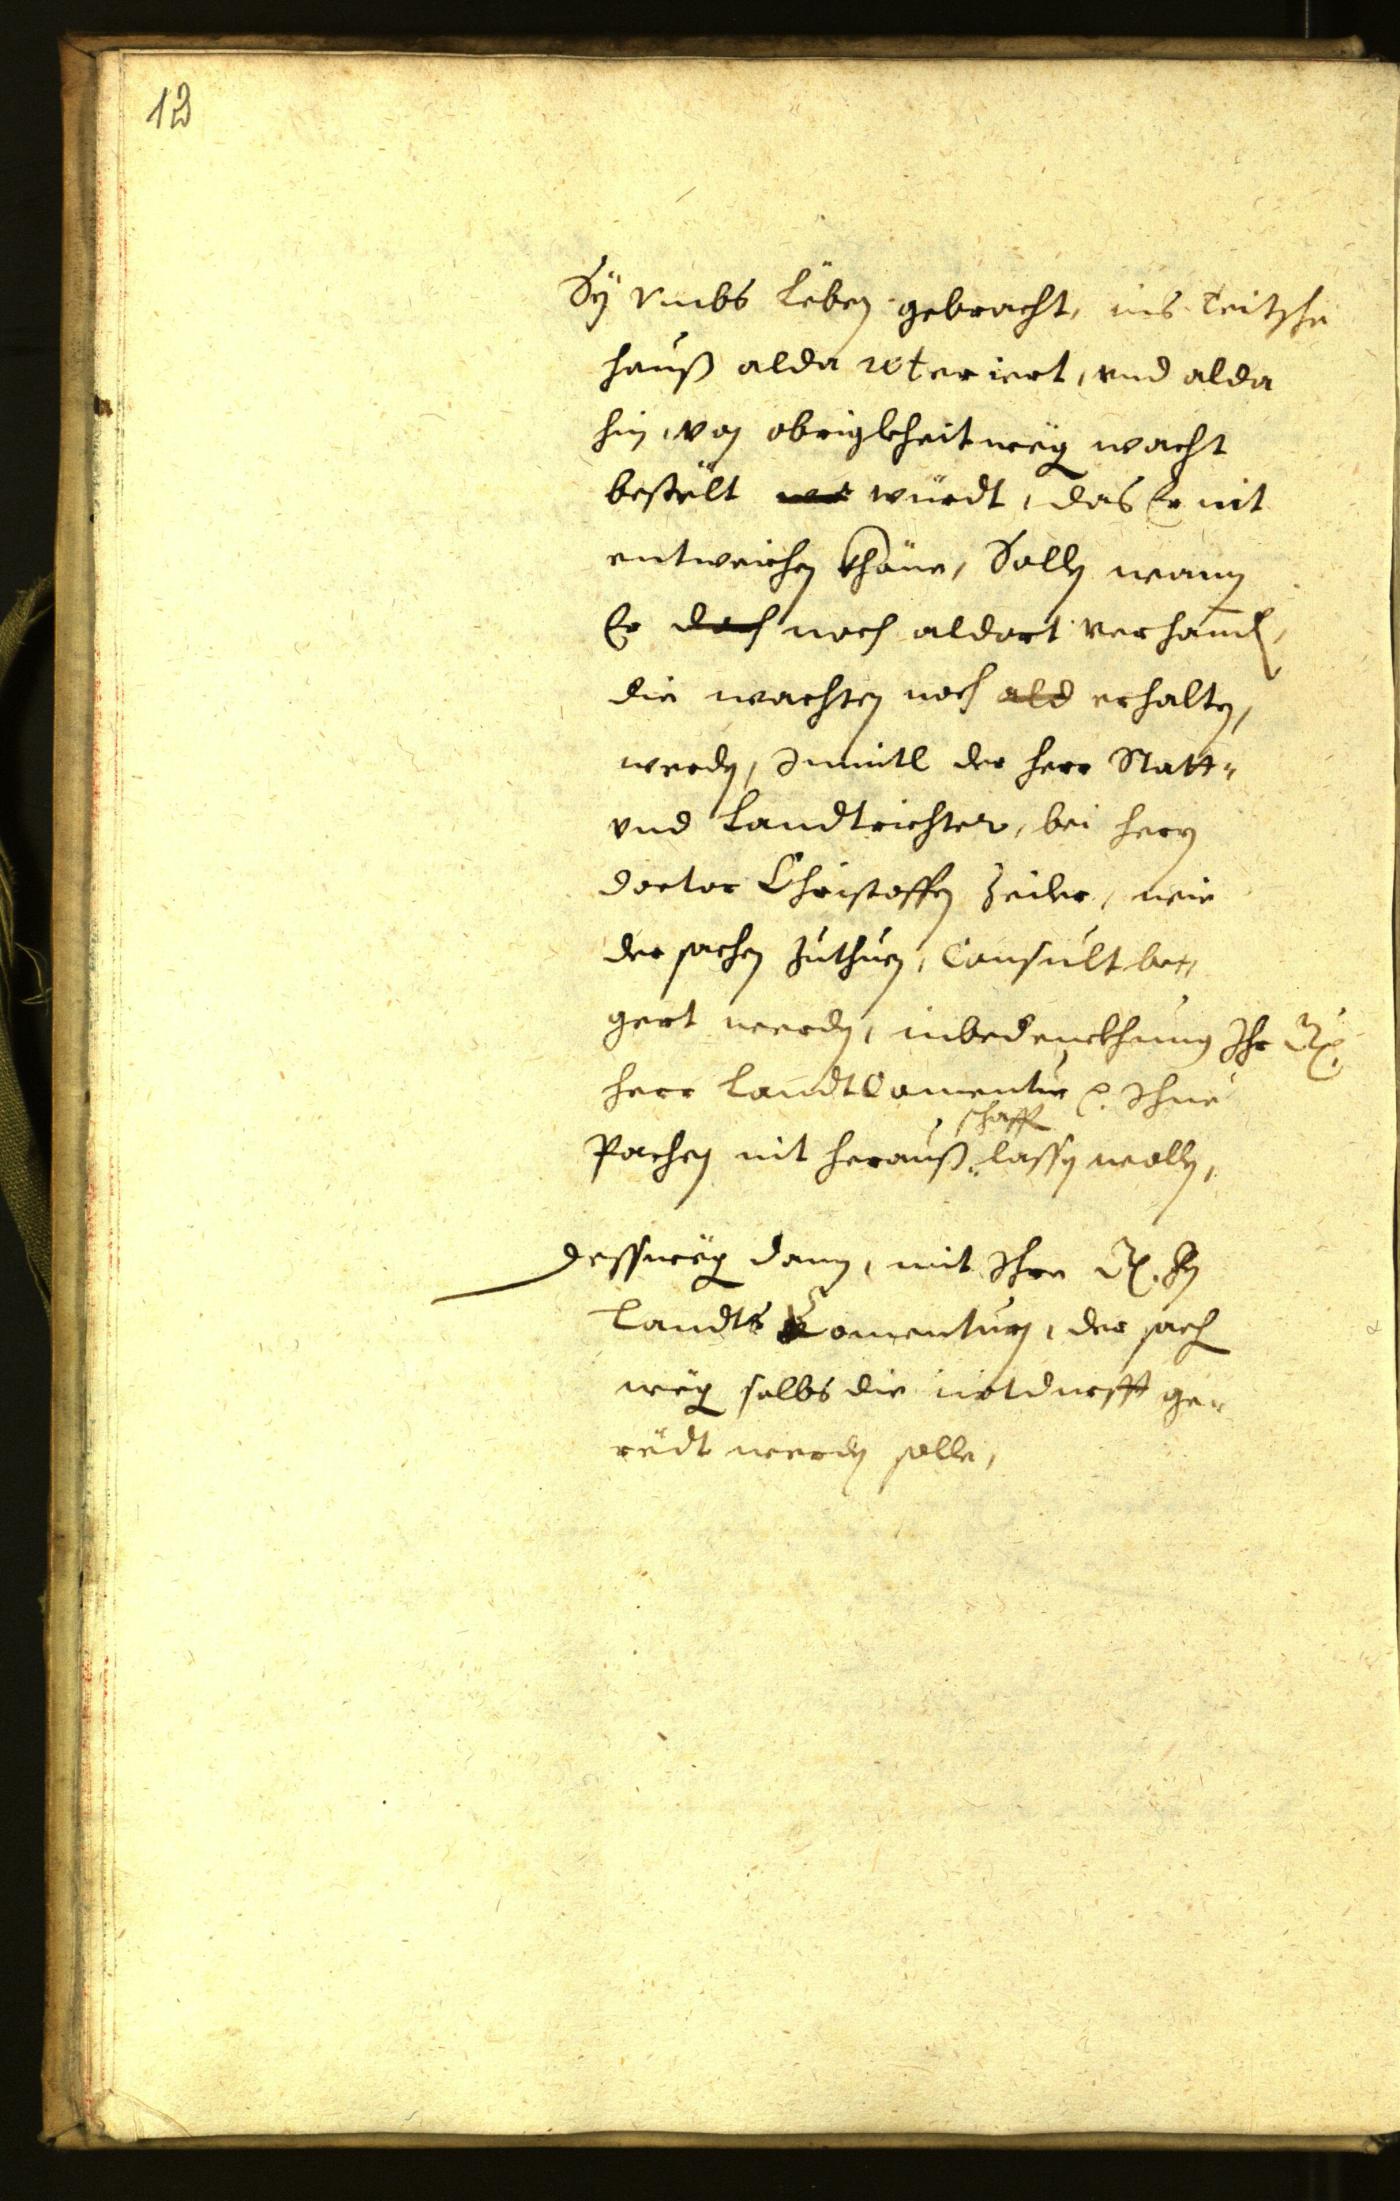 12
Sÿ vmbs Lëben gebracht, ins Teitsche
hauß alda reteriert, vnd alda
hin, von obrigkheit wëg wacht
bestëlt würdt, das Er nit
entweichen khöne, Solln wann
Er doch noch aldort verhand,
die wachten noch ald erhalten,
werdn, Inmitl der herr Statt-
vnd Landtrichter, bei hern
doctor Christoffen Zeiler, wie
der sachen zuthuen, Consult be-
gert werdn, inbedenckhung Ihr
herr LandtComentur Ihne
schaff
Pachen nit herauß lassn wolln,
desswëg dann, mit Ihr Hn
Landts Comenturn, der sach
wëg selbs die notdurfft ge-
rëdt werdn solle,